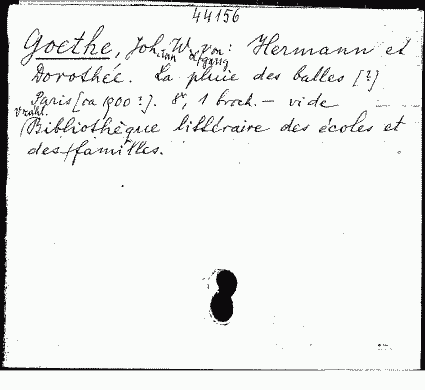 44156
Goethe, Johann Wolfgang von: Hermann et
Dorothée. La pluie des balles [?]
Paris [ca 1900?]. 8°, 1 broch. — vide
Bibliothèque littéraire des écoles et
des familles.